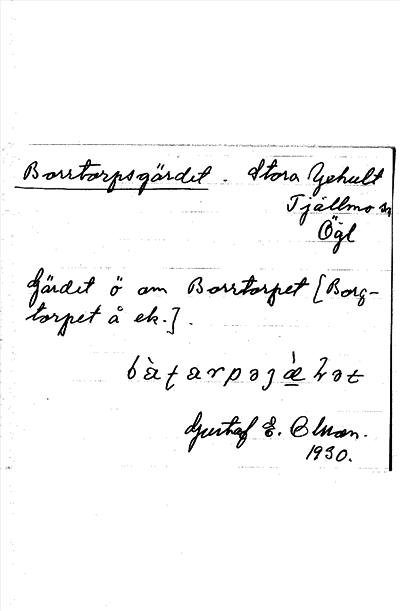 Borrtorpsgärdet. Stora Yxhult
Tjällmo sn
Ögl
Gärdet ö om Borrtorpet [Borg-
torpet å ek.].
Gustaf E. Olsson.
1930.